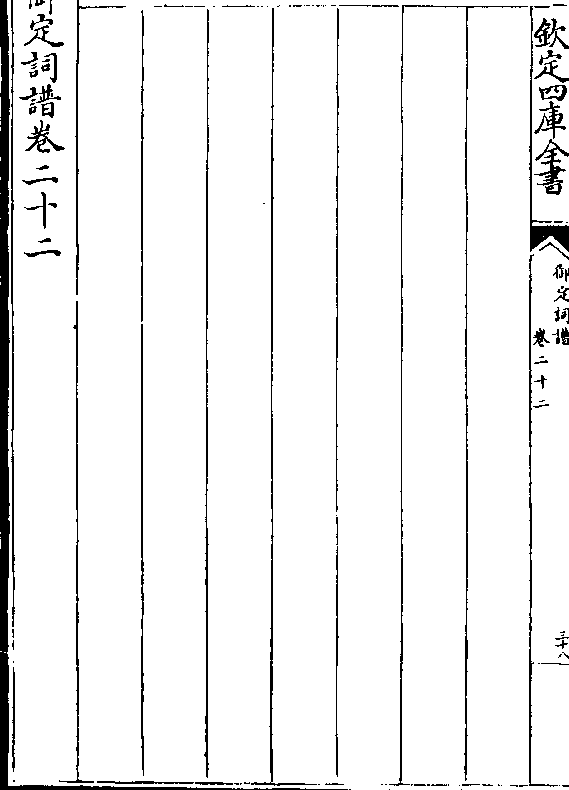 欽定四庫全書
御定詞譜
卷二十二
三十八
御定詞譜卷二十二